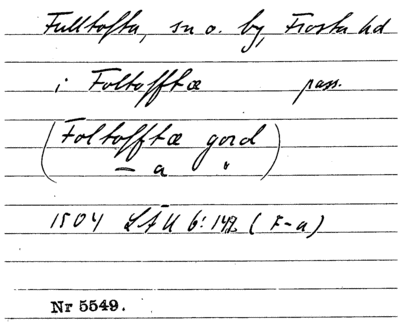 Fulltofta, sn o. by, Frosta hd
i Foltofftæ pass.
(Foltofftæ gord
— a " )
1504 LÄU 6:142 (F-a)
Nr 5549.